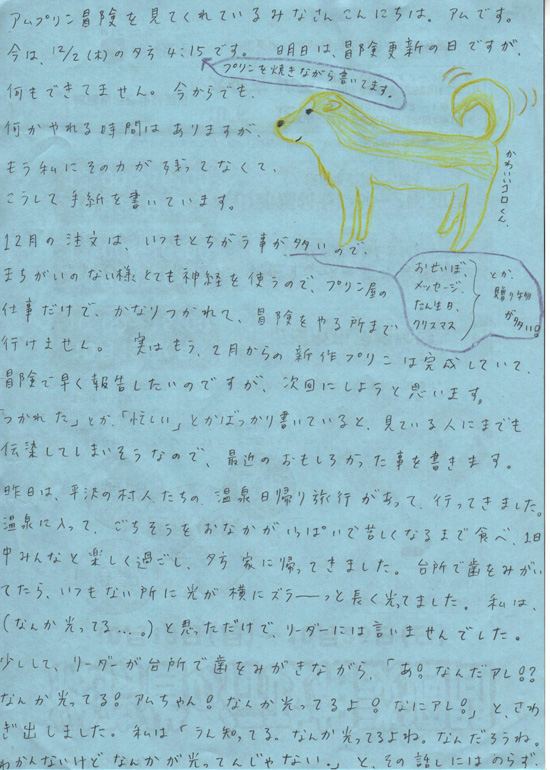 アムプリン冒険を見てくれているみなさんこんにちは。アムです。
今は、12/2(木)の夕方4:15です。 明日は、冒険更新の日ですが、
プリンを焼きながら書いてます。
何もできてません。今からでも、
何かやれる時間はありますが、
もう私にその力が残ってなくて、
こうして手紙を書いています。
かわいいコロくん。
12月の注文は、いつもとちがう事が多いので、
まちがいのない様とても神経を使うので、プリン屋の
仕事だけで、かなりつかれて、冒険をやる所まで
行けません。 実はもう、2月からの新作プリンは完成していて、
おせいぼ、
メッセージ、
たん生日、
クリスマス
とか、
贈り物
が多い!
冒険で早く報告したいのですが、次回にしようと思います。
「つかれた」とか、「忙しい」とかばっかり書いていると、見ている人にまでも
伝染してしまいそうなので、最近のおもしろかった事を書きます。
昨日は、平沢の村人たちの、温泉日帰り旅行があって、行ってきました。
温泉に入って、ごちそうをおなかがいっぱいで苦しくなるまで食べ、1日
中みんなと楽しく過ごし、夕方家に帰ってきました。台所で歯をみがい
てたら、いつもない所に光が横にズラーーっと長く光ってました。私は、
(なんか光ってる....。)と思っただけで、リーダーには言いませんでした。
少しして、リーダーが台所で歯をみがきながら、「あ!なんだアレ!?
なんか光ってる!アムちゃん!なんか光ってるよ!なにアレ!」と、さわ
ぎ出しました。私は「うん知ってる。なんか光ってるよね。なんだろうね。
わかんないけどなんかが光ってんじゃない。」と、その話しにはのらず、